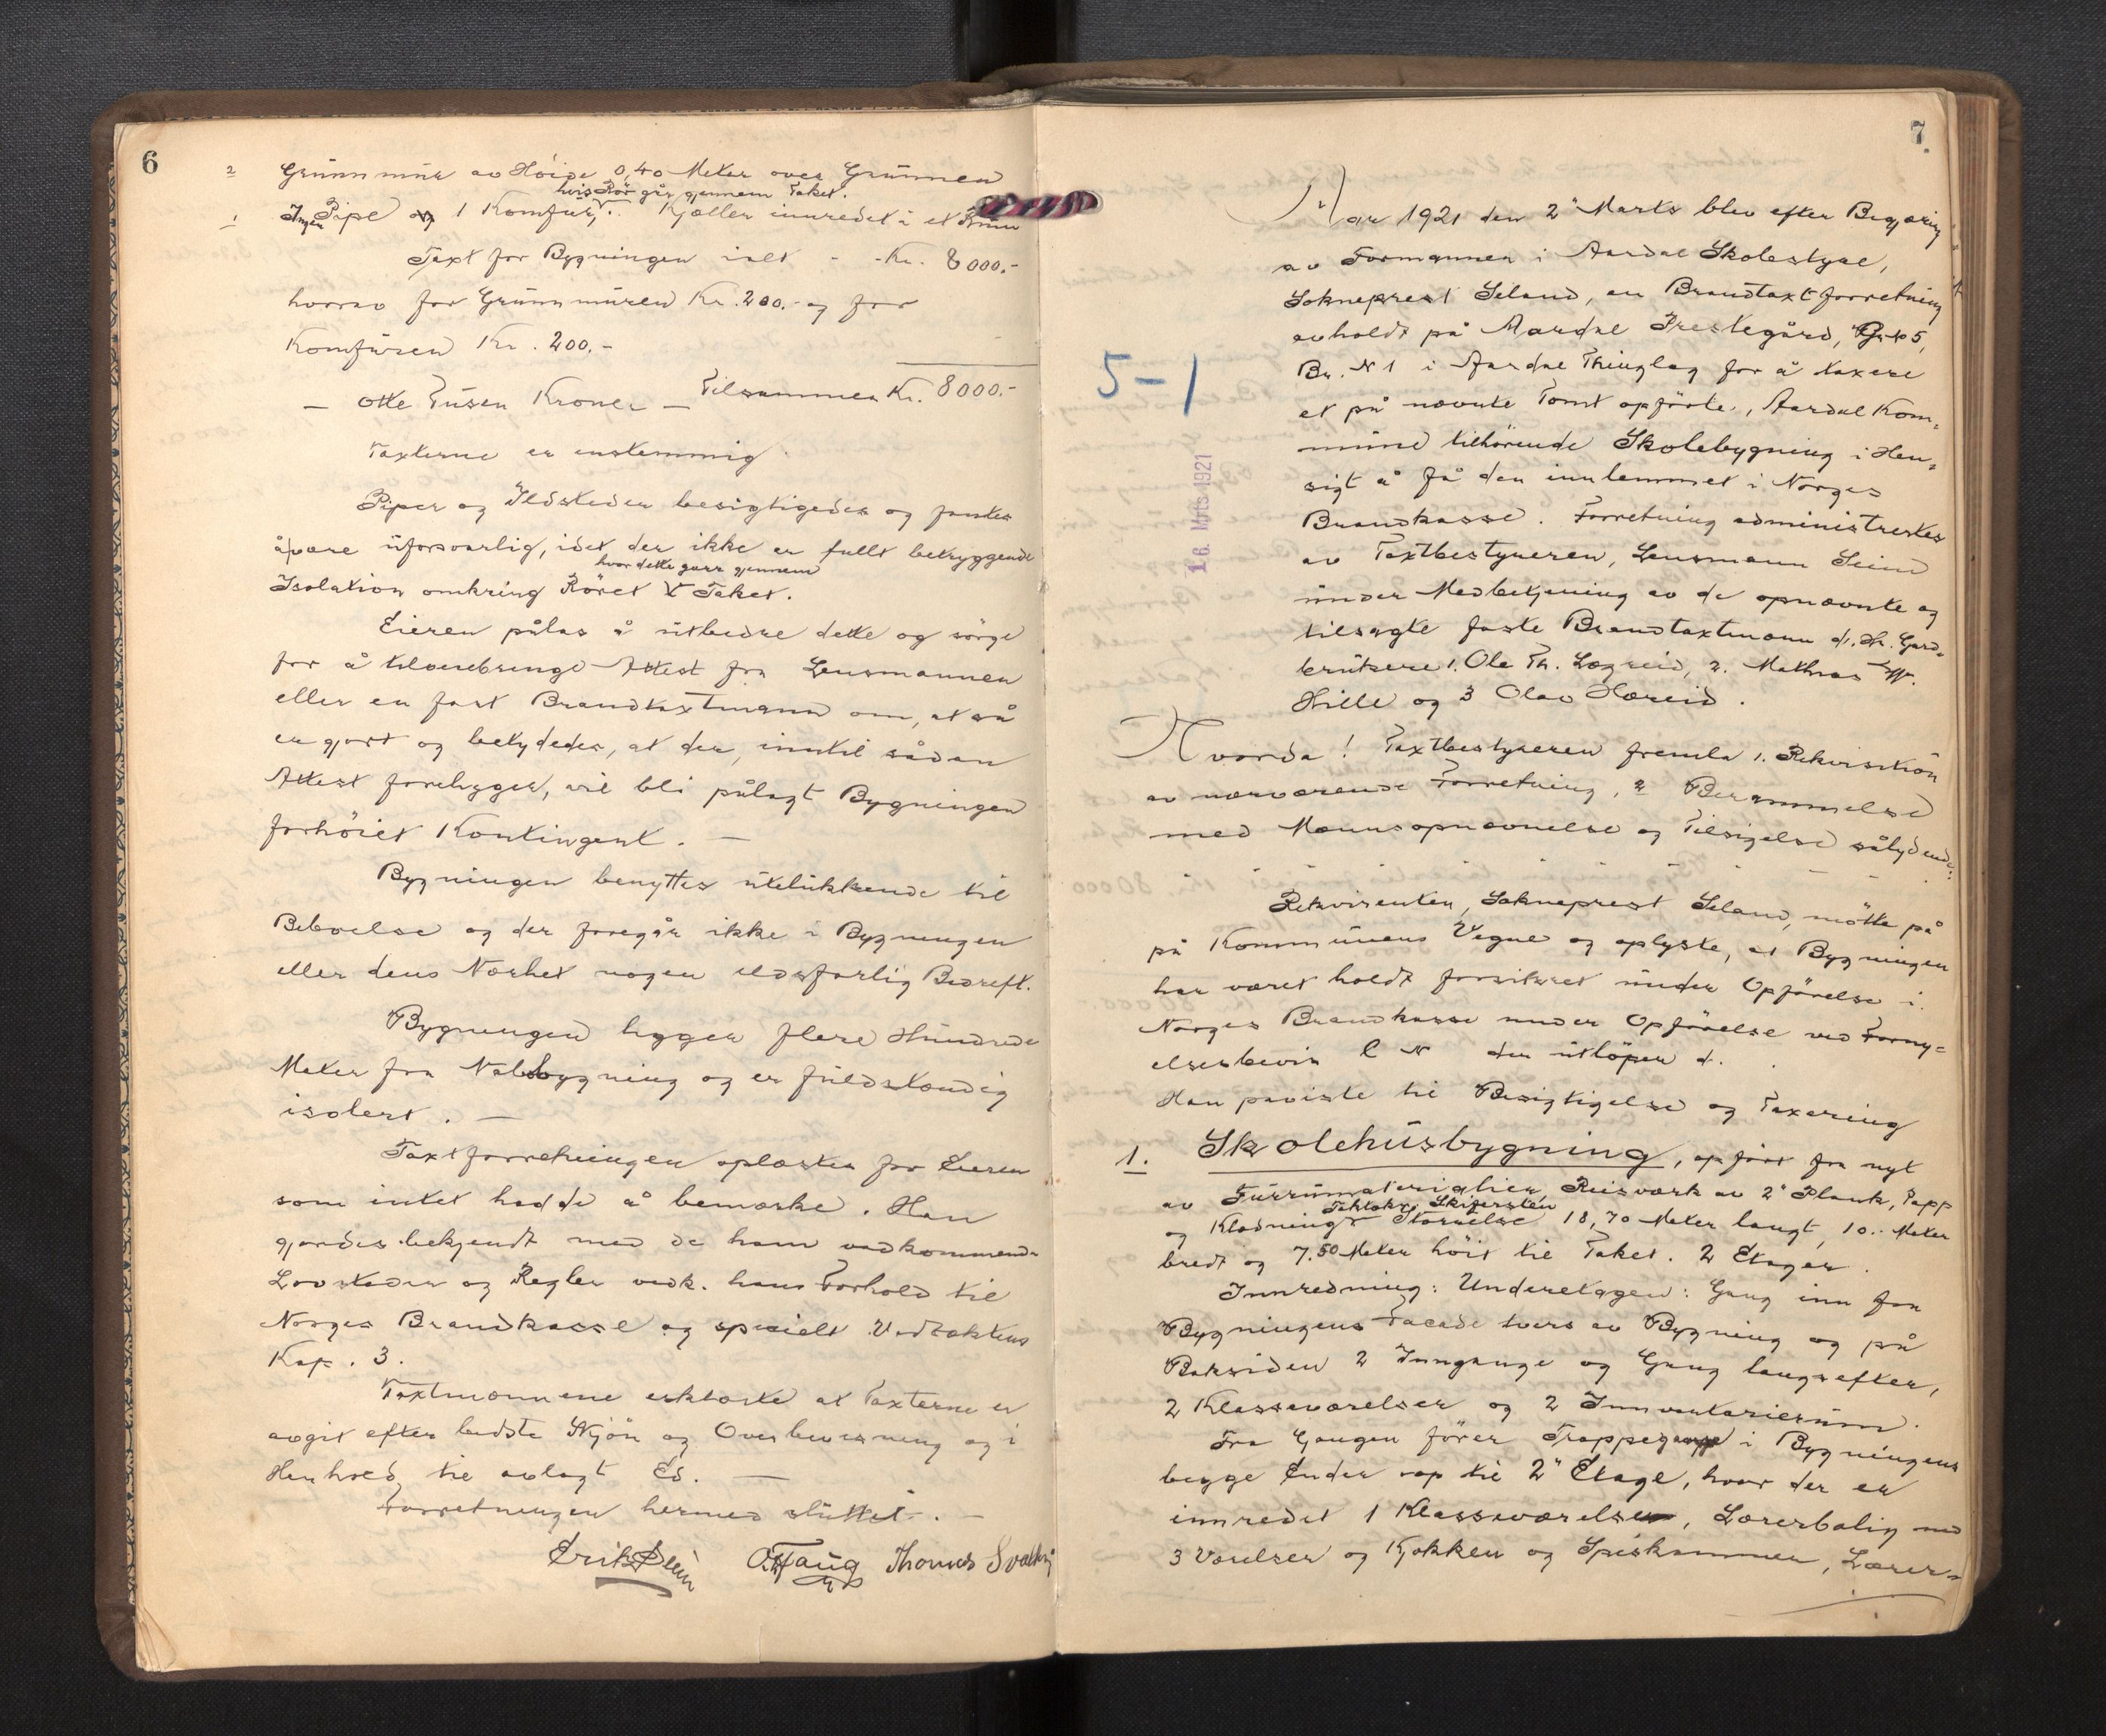 6
2 Grunnmur av Höide 0,40 Meter over Grunnen
hvis Rör går gjennem Taket.
1 Ingen Pipe og 1 Komfur, Kjeller innredet i et Rum
Taxt for Bygningen ialt - - Kr. 8000.-
hvorav for Grunnmuren Kr. 200.- og for
Komfuren Kr. 200.-
Tilsammen Kr. 8000.-
— Otte Tusen Kroner —
Taxterne er enstemmig.
Piper og Ildsteder besigtigedes og fantes
å være uforsvarlig, idet der ikke er fullt betryggende
hvor dette gaar gjennem
Isolation omkring Röret V Taket.
Eieren pålas å utbedre dette og sörge
for å tilveiebringe Attest fra Lensmannen
eller en fast Brandtaxtmann om, at så
er gjort og betydedes, at der, inntil sådan
Attest foreligger, vil bli pålagt Bygningen
forhöiet Kontingent. —
Bygningen benyttes utelukkende til
Beboelse og der foregår ikke i Bygningen
eller dens Nærhet nogen ildsfarlig Bedreft.
Bygningen ligger flere Hundrede
Meter fra Nabobygning og er fuldstændig
isolert. —
Taxtforretningen oplæstes for Eieren
som intet hadde å bemærke. Han
gjordes bekjendt med de ham vedkommende
Lovsteder og Regler vedk. hans Forhold til
Norges Brandkasse og specielt Vedtæktens
Kap. 3.
Taxtmænnene erklærte at Taxterne er
avgit efter bedste Skjön og Overbevisning og i
Henhold til avlagt Ed. —
Forretningen hermed sluttet. —
Erik Seim O. Haug Thomas Svalhei
7.
År 1921 den 2" Marts blev efter Begjæring
av Formannen i Aardal Skolestyre,
Sokneprest Seland, en Brandtaxtforretning
avholdt på Aardal Prestegård, Gr. No 5,
5-1
Br. N 1 i Aardal Thinglag for å taxere
et på nævnte Tomt opförte, Aardal Kom-
mune tilhörende Skolebygning i Hen-
16. Mrts 1921
sigt å få den innlemmet i Norges
Brandkasse. Forretning administrertes
av Taxtbestyreren, Lensmann Seim
under Medbetjening av de opnævnte og
tilsagte faste Brandtaxtmænn d.Hr. Gard-
brukere 1. Ole Th. Lægreid, 2. Mathias W.
Hille og 3 Olav Hæreid.
Hvorda! Taxtbestyreren fremla 1. Rekvisition
av nærværende Forretning, 2 Berammelse
med Mannsopnævnelse og Tilsigelse sålydende:
Rekvirenten, Sokneprest Seland, mötte på
på Kommunens Vegne og oplyste, at Bygningen
har været holdt forsikret under Opförelse i
Norges Brandkasse under Opförelse ved Forny-
elsesbevis L N den utlöper d. .
Han paviste til Besigtigelse og Taxering
1. Skolehusbygning, opfört fra nyt
av Furumaterialier, Reisværk av 2" Plank, Papp
Taktekn. Skifersten
og Klædning, Störrelse 18,70 Meter langt, 10.- Meter
bredt og 7.50 Meter höit til Taket. 2 Etager.
Innredning: Underetagen: Gang inn fra
Bygningens Facade tvers av Bygning og på
Baksiden 2 Innganger og Gang langsefter,
2 Klasseværelser og 2 Innventarierum.
Fra Gangen förer Trappegange i Bygningens
begge Ender op til 2" Etage, hvor der er
innredet 1 Klasseværelse, Lærerbolig med
3 Værelser og Kjökken og Spiskammer, Lærer-